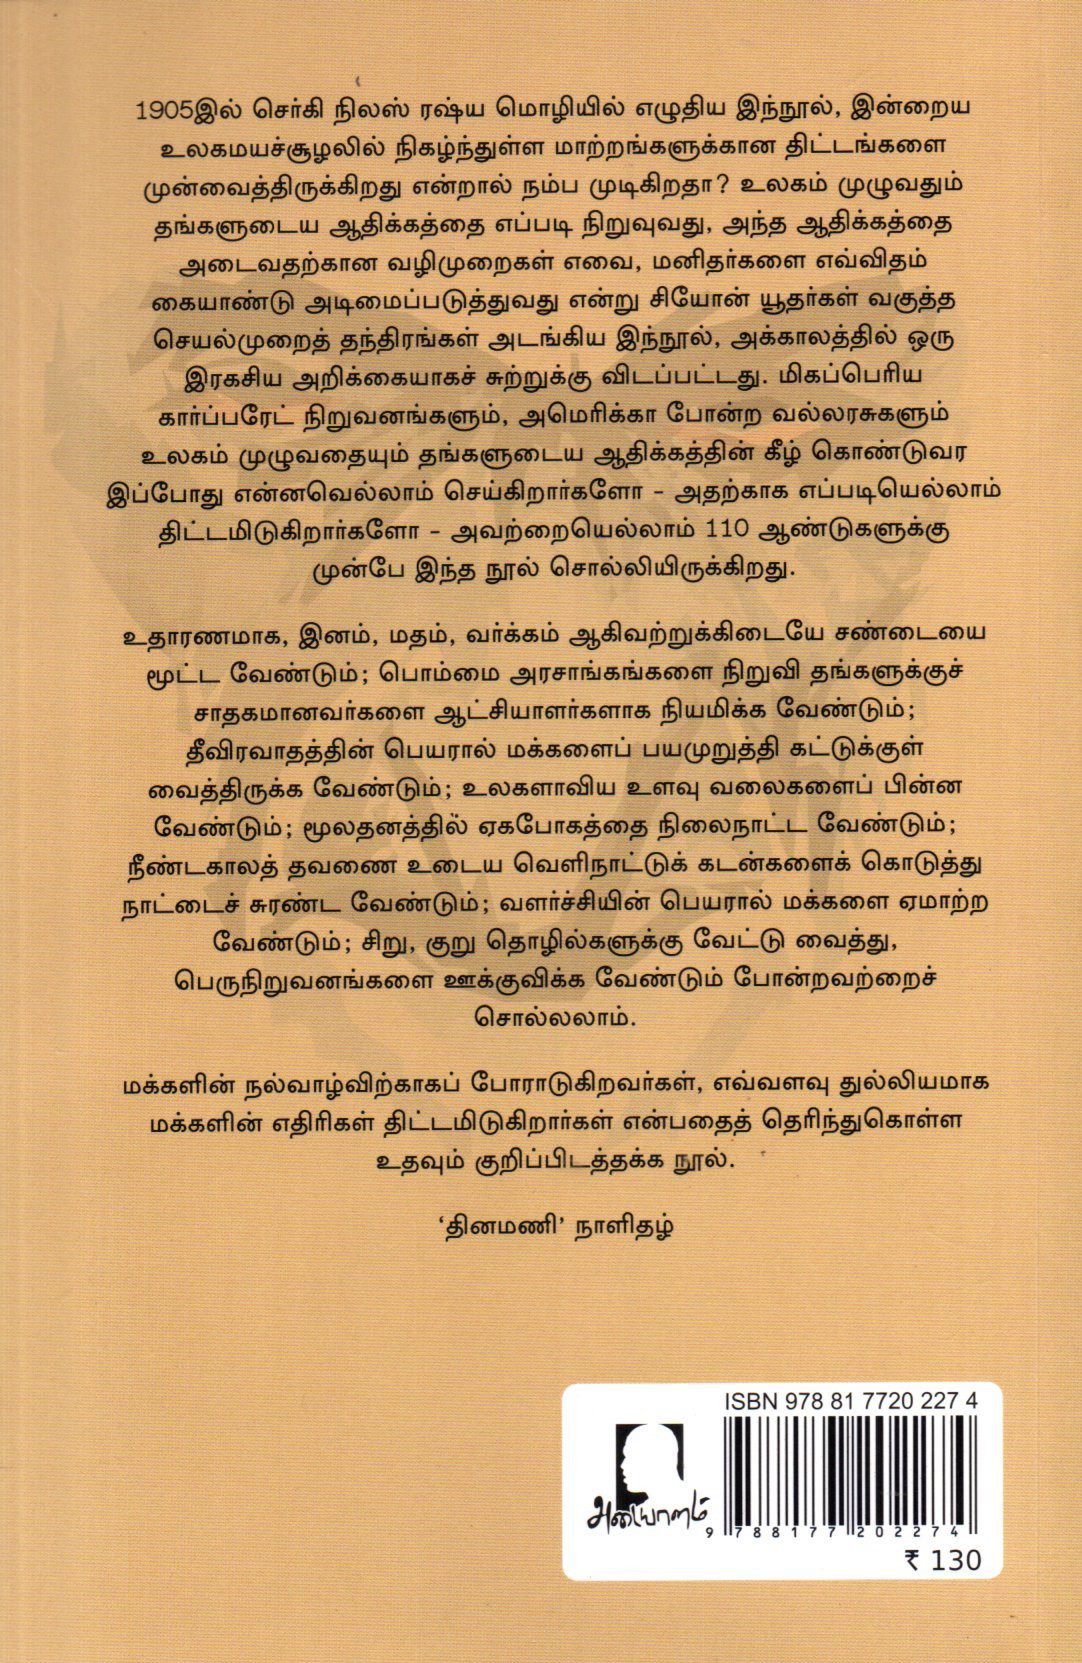 1905இல் செர்கி நிலஸ் ரஷ்ய மொழியில் எழுதிய இந்நூல், இன்றைய
உலகமயச்சூழலில் நிகழ்ந்துள்ள மாற்றங்களுக்கான திட்டங்களை
முன்வைத்திருக்கிறது என்றால் நம்ப முடிகிறதா? உலகம் முழுவதும்
தங்களுடைய ஆதிக்கத்தை எப்படி நிறுவுவது, அந்த ஆதிக்கத்தை
அடைவதற்கான வழிமுறைகள் எவை, மனிதர்களை எவ்விதம்
கையாண்டு அடிமைப்படுத்துவது என்று சியோன் யூதர்கள் வகுத்த
செயல்முறைத் தந்திரங்கள் அடங்கிய இந்நூல், அக்காலத்தில் ஒரு
இரகசிய அறிக்கையாகச் சுற்றுக்கு விடப்பட்டது. மிகப்பெரிய
கார்ப்பரேட் நிறுவனங்களும், அமெரிக்கா போன்ற வல்லரசுகளும்
உலகம் முழுவதையும் தங்களுடைய ஆதிக்கத்தின் கீழ் கொண்டுவர
இப்போது என்னவெல்லாம் செய்கிறார்களோ – அதற்காக எப்படியெல்லாம்
திட்டமிடுகிறார்களோ – அவற்றையெல்லாம் 110 ஆண்டுகளுக்கு
முன்பே இந்த நூல் சொல்லியிருக்கிறது.
உதாரணமாக, இனம், மதம், வர்க்கம் ஆகிவற்றுக்கிடையே சண்டையை
மூட்ட வேண்டும்; பொம்மை அரசாங்கங்களை நிறுவி தங்களுக்குச்
சாதகமானவர்களை ஆட்சியாளர்களாக நியமிக்க வேண்டும்;
தீவிரவாதத்தின் பெயரால் மக்களைப் பயமுறுத்தி கட்டுக்குள்
வைத்திருக்க வேண்டும்; உலகளாவிய உளவு வலைகளைப் பின்ன
வேண்டும்; மூலதனத்தில் ஏகபோகத்தை நிலைநாட்ட வேண்டும்;
நீண்டகாலத் தவணை உடைய வெளிநாட்டுக் கடன்களைக் கொடுத்து
நாட்டைச் சுரண்ட வேண்டும்; வளர்ச்சியின் பெயரால் மக்களை ஏமாற்ற
வேண்டும்; சிறு, குறு தொழில்களுக்கு வேட்டு வைத்து,
பெருநிறுவனங்களை ஊக்குவிக்க வேண்டும் போன்றவற்றைச்
சொல்லலாம்.
மக்களின் நல்வாழ்விற்காகப் போராடுகிறவர்கள், எவ்வளவு துல்லியமாக
மக்களின் எதிரிகள் திட்டமிடுகிறார்கள் என்பதைத் தெரிந்துகொள்ள
உதவும் குறிப்பிடத்தக்க நூல்.
‘தினமணி’ நாளிதழ்
ISBN 978 81 7720 227 4
அடையாளம்
9 788177 202274
₹ 130